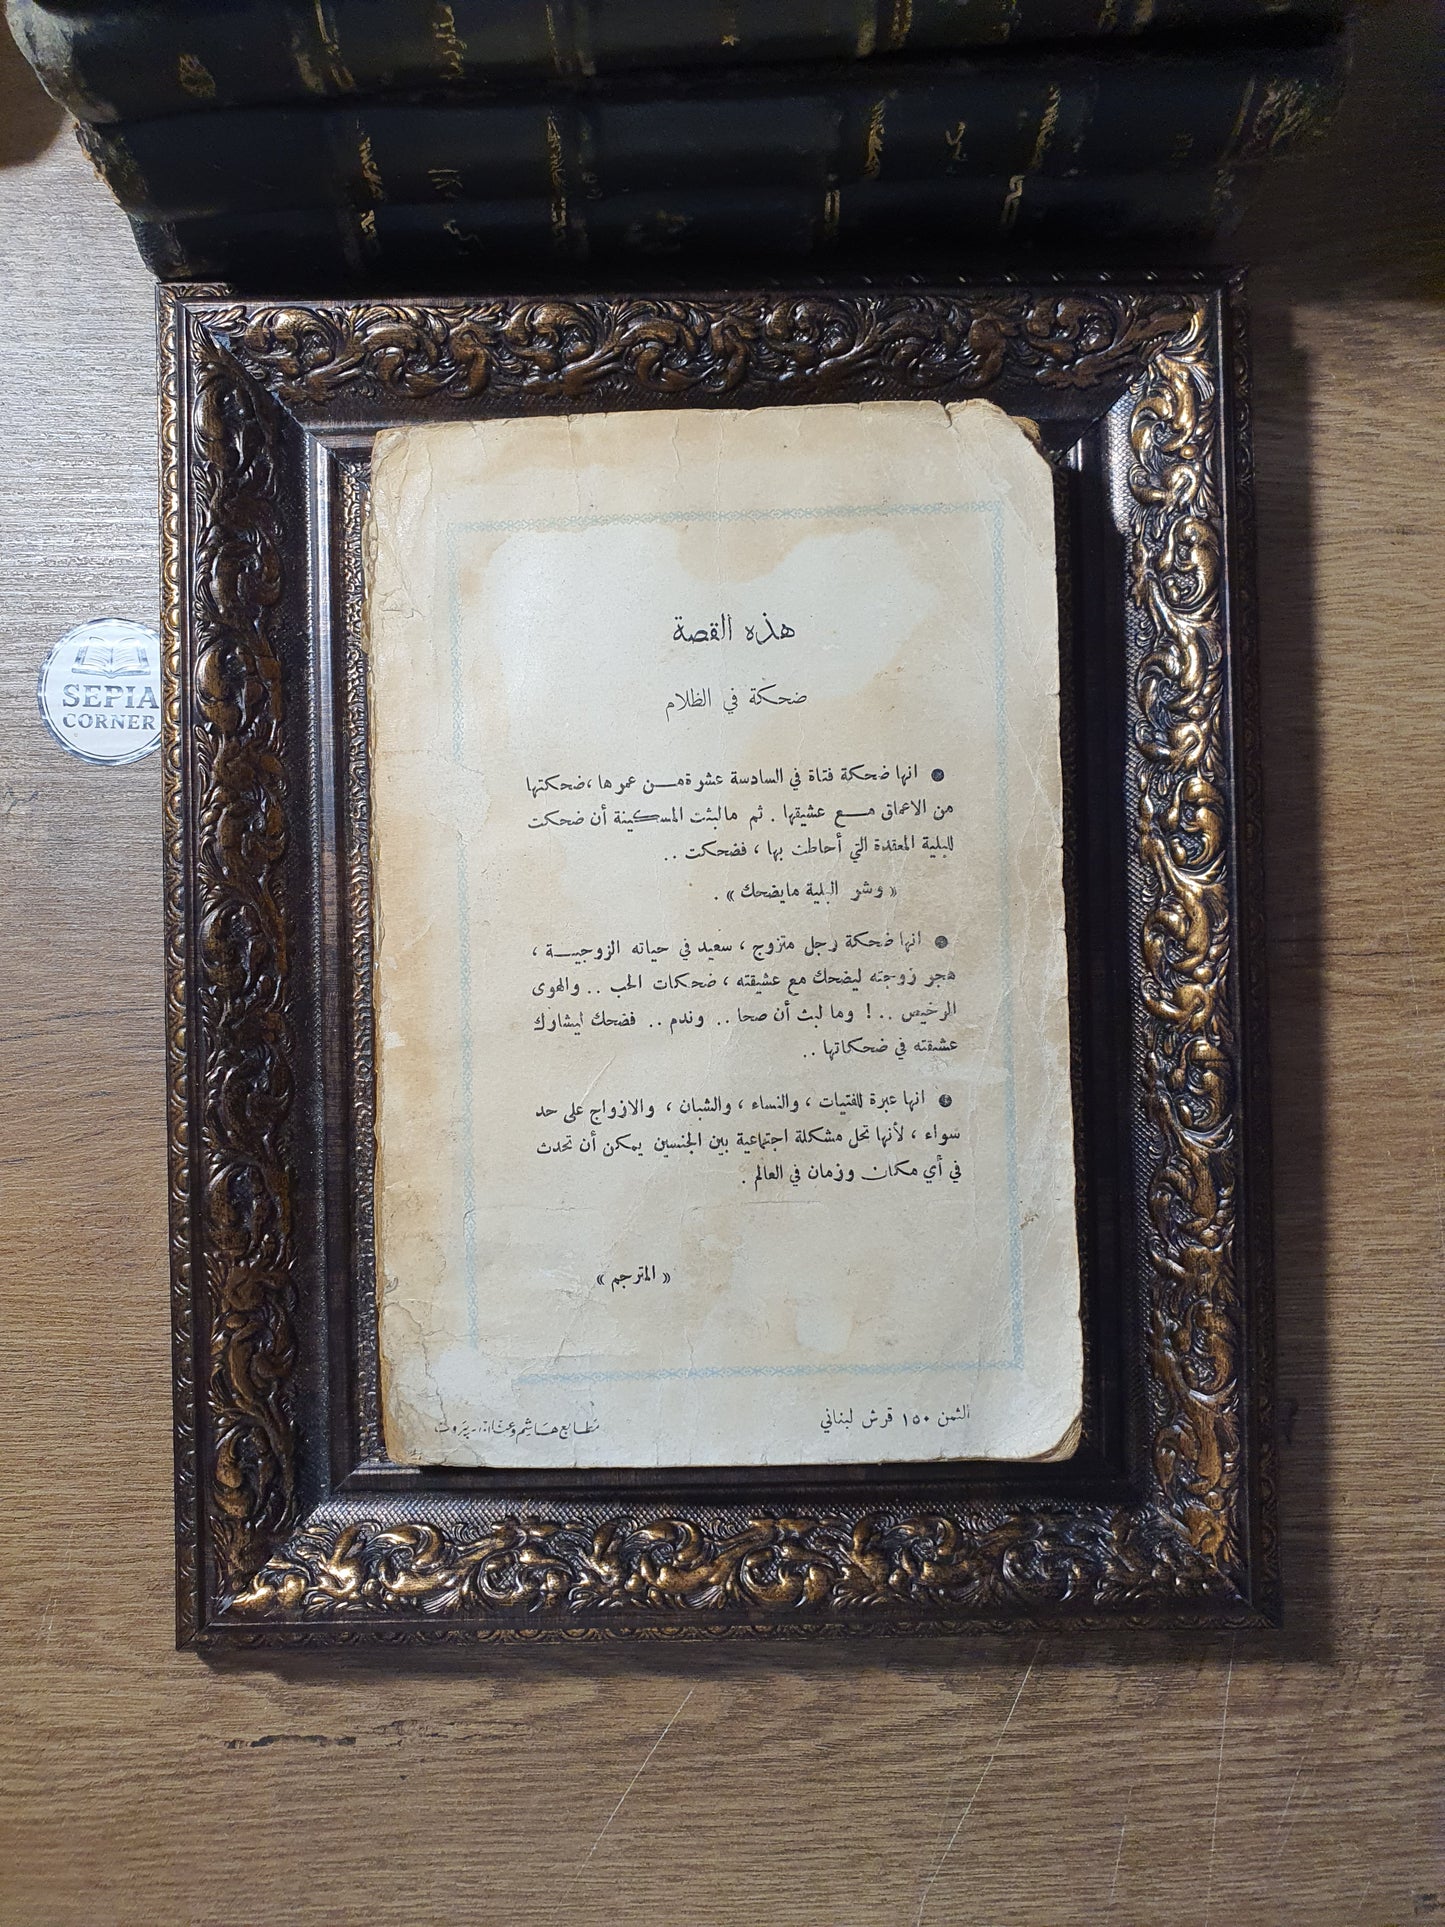 SEPIA
CORNER
هذه القصة
ضحكة في الظلام
● انها ضحكة فتاة في السادسة عشرة من عمرها، ضحكتها
من الاعماق مع عشيقها . ثم مالبثت المسكينة أن ضحكت
للبلية المعقدة التي أحاطت بها ، فضحكت ..
« وشر البلية مايضحك » .
● انها ضحكة رجل متزوج ، سعيد في حياته الزوجية ،
هجر زوجته ليضحك مع عشيقته ، ضحكات الحب .. والهوى
الرخيص .. ! وما لبث أن صحا .. وندم .. فضحك ليشارك
عشيقته في ضحكاتها ..
● انها عبرة للفتيات ، والنساء ، والشبان ، والازواج على حد
سواء ، لأنها تحل مشكلة اجتماعية بين الجنسين يمكن أن تحدث
في أي مكان وزمان في العالم .
« المترجم »
الثمن ١٥٠ قرش لبناني
مطابع هاشم بيروت